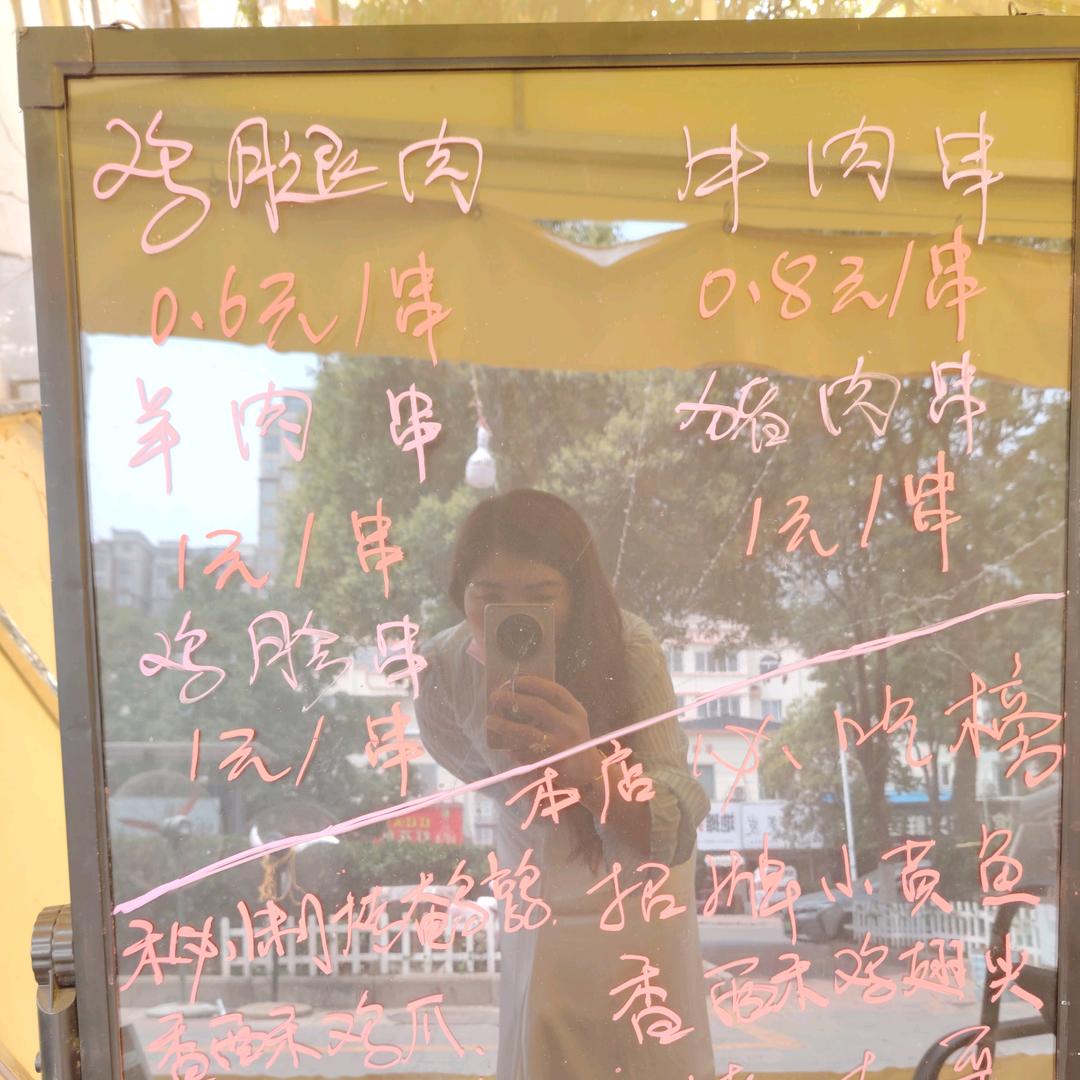 鸡腿肉
牛肉串
0.6元/串
0.8元/串
羊肉串
猪肉串
1元/串
1元/串
鸡胗串
1元/串
本店必吃榜
秘制烤鹌鹑
招牌小黄鱼
香酥鸡爪
香酥鸡翅尖